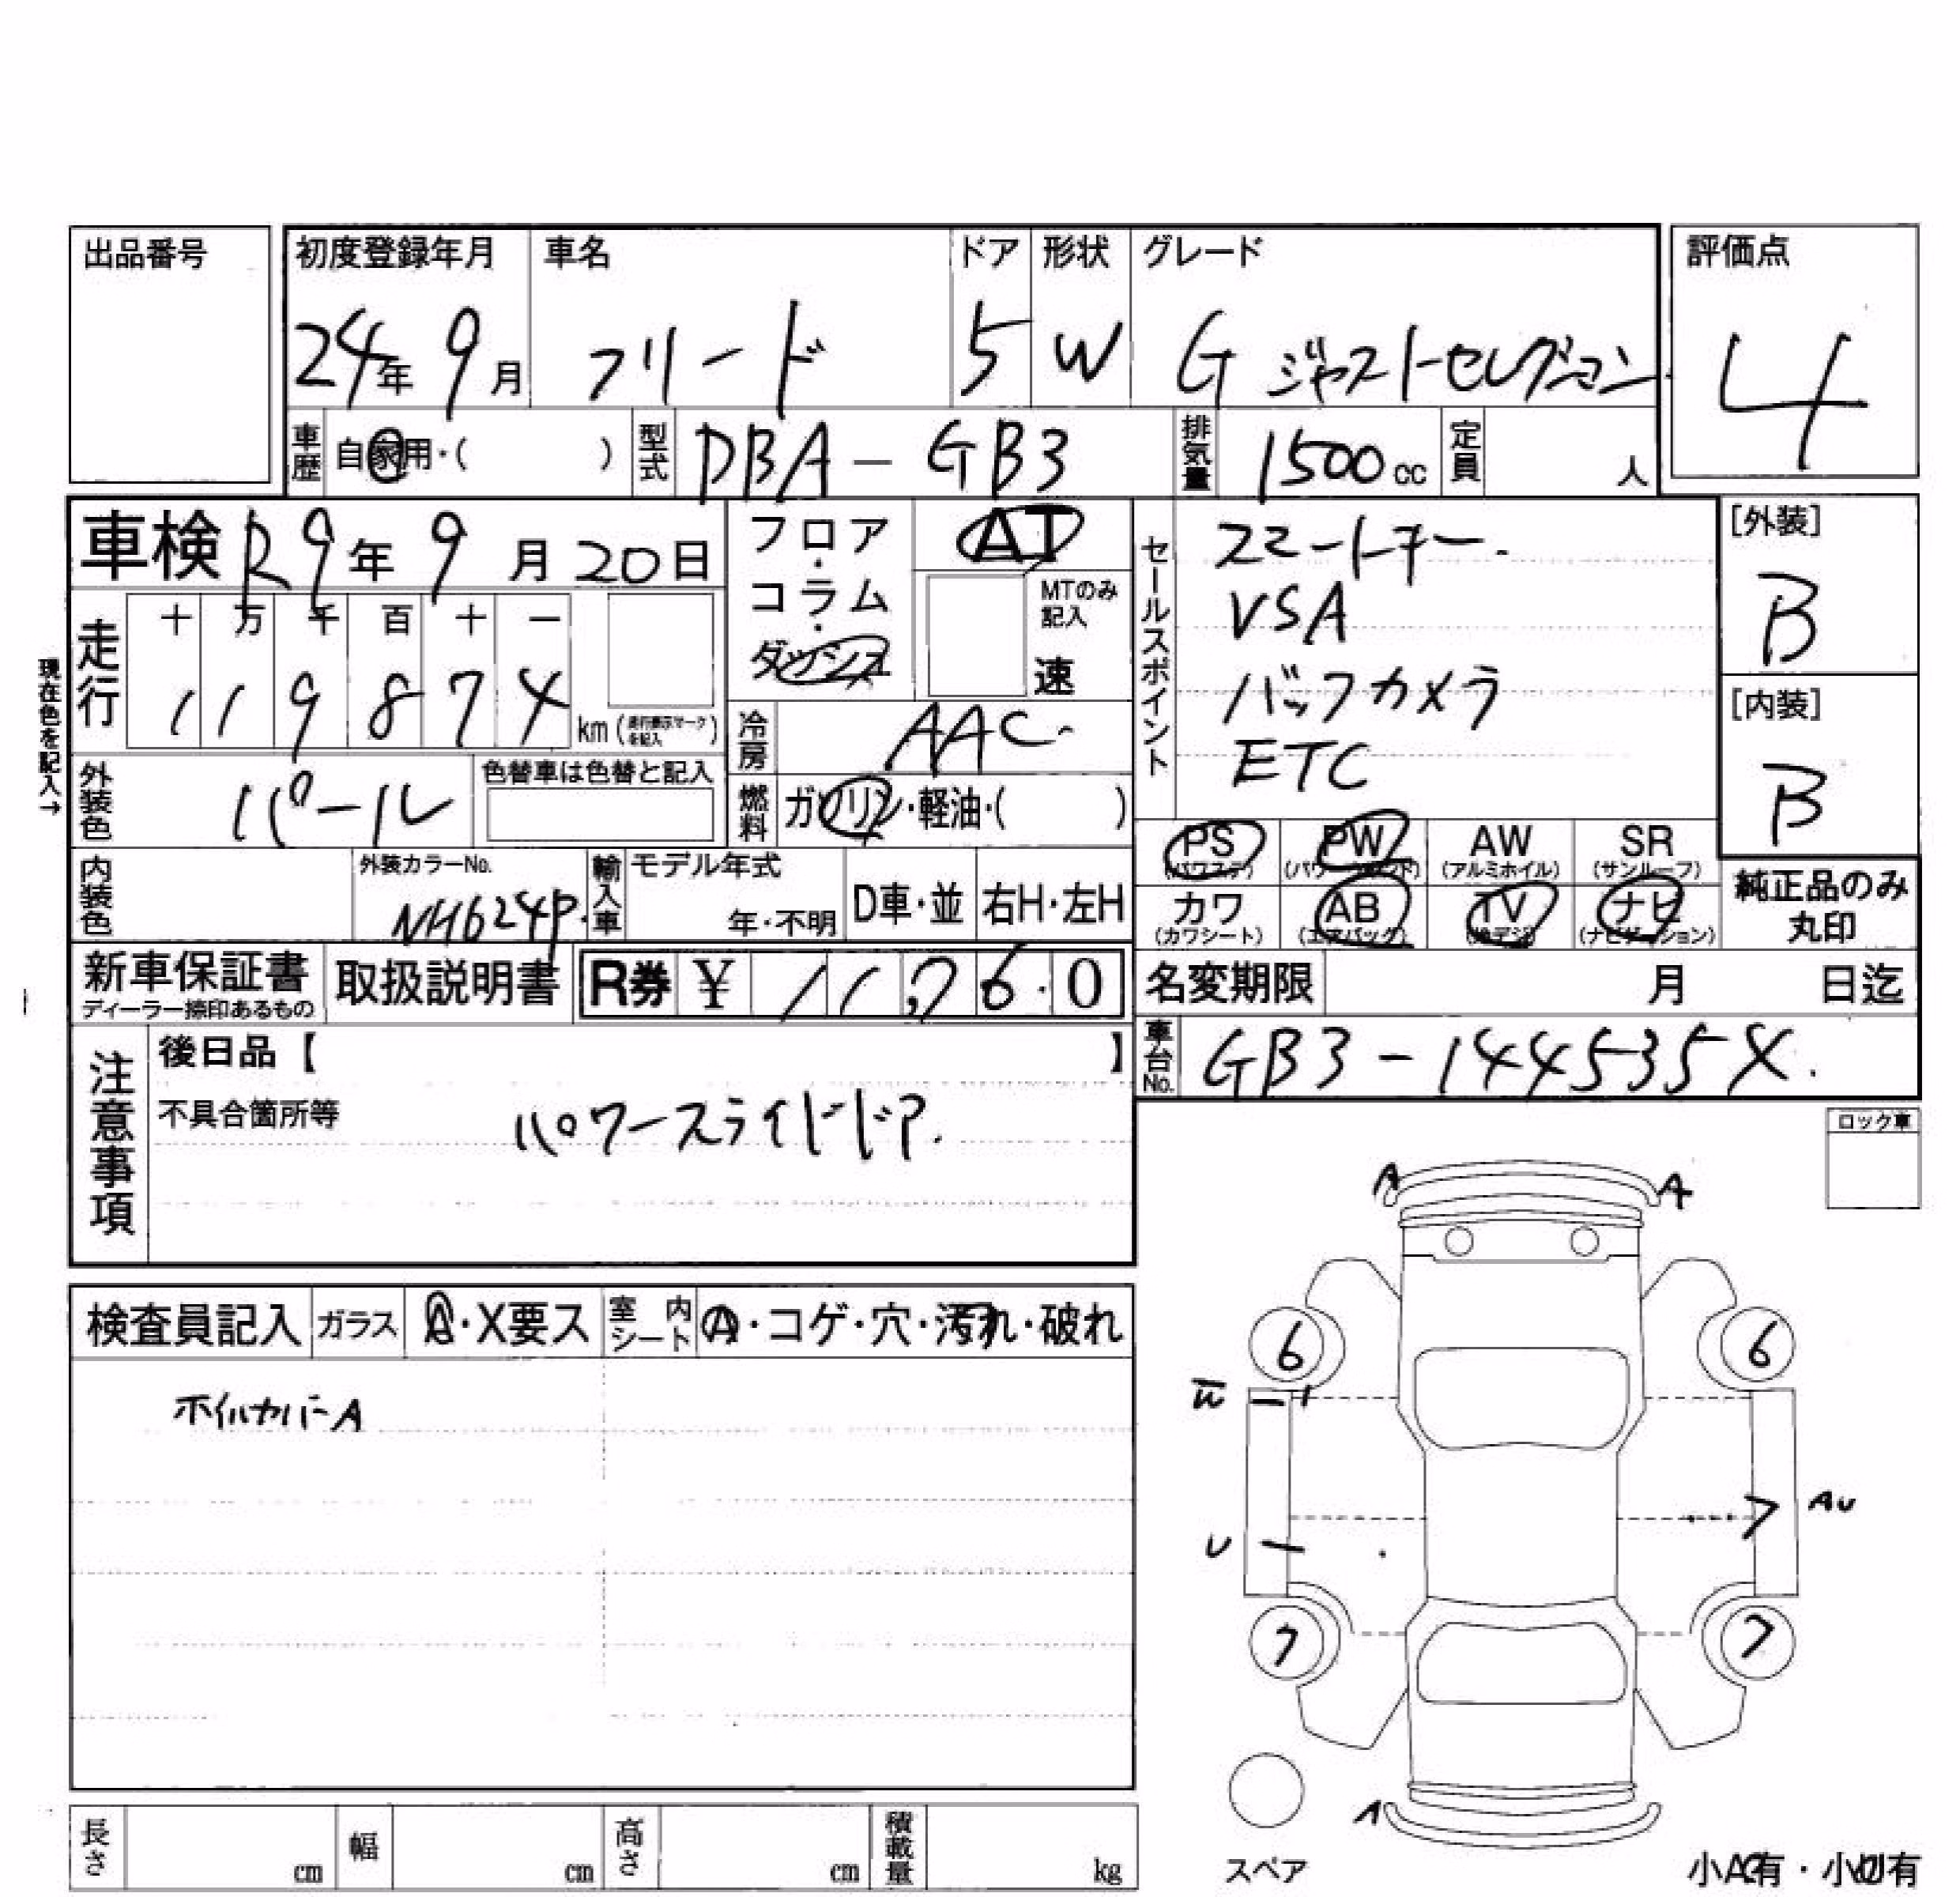 出品番号
初度登録年月 車名 ドア 形状 グレード 評価点
24年 9月 フリード 5 W G ジャストセレクション 4
車歴 自家用・( ) 型式 DBA - GB3 排気量 1500cc 定員 人
車検 R9年 9月 20日
フロア・コラム・ダッシュ AT
MTのみ記入 速
走行 十 万 千 百 十 一
1 1 9 8 7 4 km
現在色を記入→
冷房 AAC
外装色 パール 色替車は色替と記入
燃料 ガソリン・軽油・( )
セールスポイント スマートキー.
VSA
バックカメラ
ETC
[外装]
B
[内装]
B
PS (パワステ) PW AW (アルミホイル) SR (サンルーフ)
カワ (カワシート) AB (エアバッグ) TV (地デジ) ナビ (ナビゲーション)
純正品のみ丸印
内装色 外装カラーNo. NH624P. 輸入車 モデル年式 年・不明 D車・並 右H・左H
新車保証書 ディーラー捺印あるもの 取扱説明書 R券 ¥ 11,760
名変期限 月 日迄
車台No. GB3-144535X.
注意事項 後日品【 】
不具合箇所等 パワースライドドア.
ロック車
検査員記入 ガラス A・X要ス 室内シート A・コゲ・穴・汚れ・破れ
ホイルカバーA
A A
6 6
W
AU
U
7 7
A
スペア
長さ cm 幅 cm 高さ cm 積載量 kg